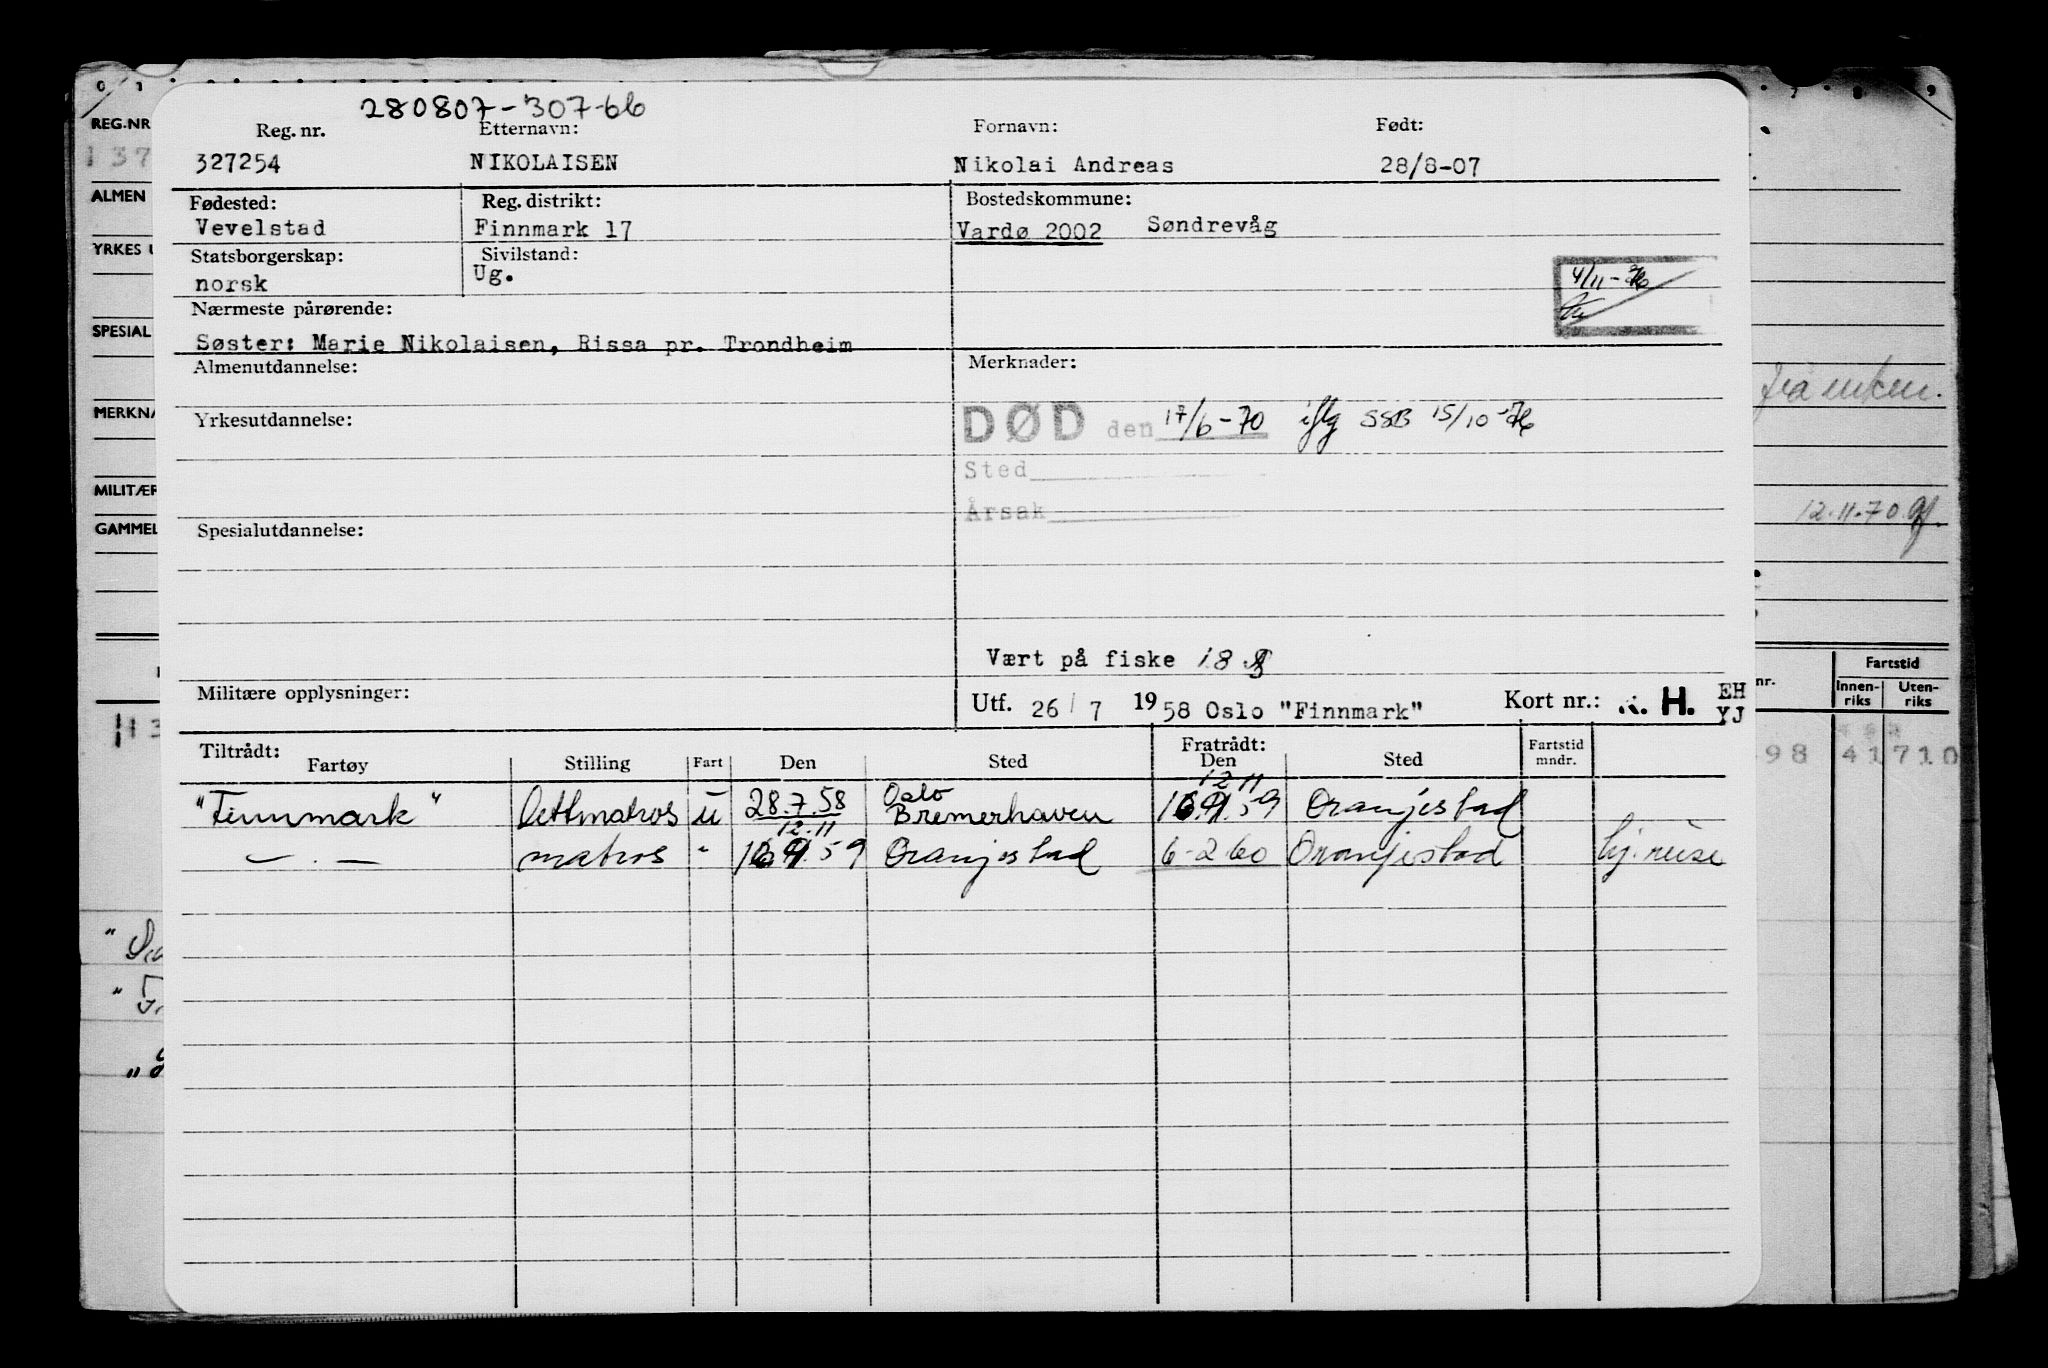 280807-307-66
Reg. nr. Etternavn: Fornavn: Født:
327254 NIKOLAISEN Nikolai Andreas 28/8-07
Fødested: Reg. distrikt: Bostedskommune:
Vevelstad Finnmark 17 Vardø 2002 Søndrevåg
Statsborgerskap: Sivilstand:
norsk Ug.
4/11-76
Nærmeste pårørende:
Søster: Marie Nikolaisen, Rissa pr. Trondheim
Almenutdannelse: Merknader:
Yrkesutdannelse: DØD den 17/6-70 iflg SSB 15/10-76
Sted
Årsak
Spesialutdannelse:
Vært på fiske 18
Militære opplysninger: Utf. 26/7 1958 Oslo "Finnmark" Kort nr.: K. H. EH
YJ
Tiltrådt: Fratrådt:
Fartøy Stilling Fart Den Sted Den Sted Fartstid
mndr.
12 11
"Finnmark" lettmatros u 28.7.58 Oslo
Bremerhaven 59 Oranjestad
12.11
— . — matros " 59 Oranjestad 6-2 60 Oranjestad hj.reise
REG.NR
137
ALMEN
YRKES U
SPESIAL
MERKNA
MILITÆR
GAMMEL
fra enken.
12.11.70
nr. Fartstid
Innen-
riks Uten-
riks
98 41 710